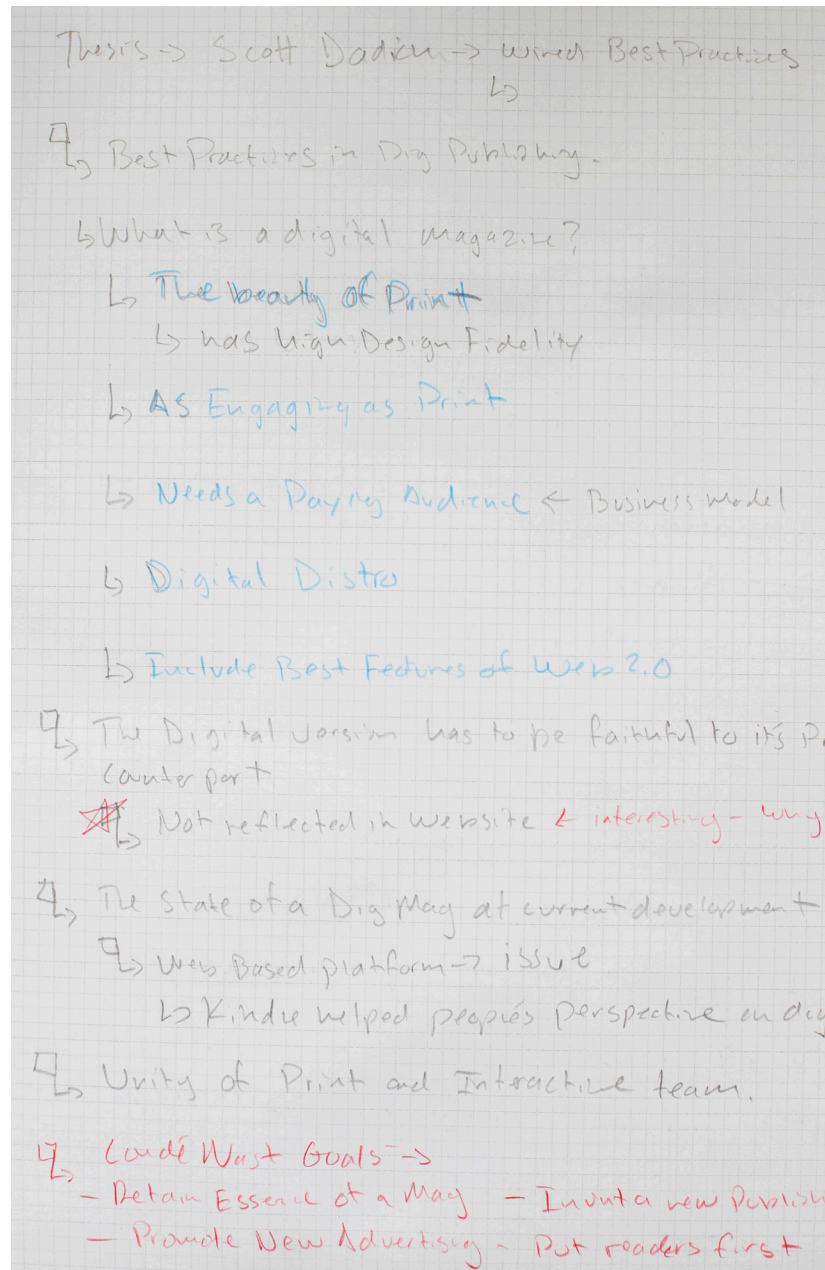 Thesis → Scott Dadich → Wired Best Practices
↳
↳ Best Practices in Dig Publishing.
↳ What is a digital magazine?
↳ The beauty of Print
↳ has high Design Fidelity
↳ AS Engaging as Print
↳ Needs a Paying Audience ← Business model
↳ Digital Distro
↳ Include Best Features of Web 2.0
↳ The Digital version has to be faithful to it's
counterpart
↳ Not reflected in website ← interesting - why
↳ The state of a Dig Mag at current development
↳ Web Based platform → issue
↳ Kindle helped people's perspective on dig
↳ Unity of Print and Interactive team.
↳ Condé Nast Goals →
- Retain Essence of a Mag - Invent a new Publish
- Promote New Advertising - Put readers first